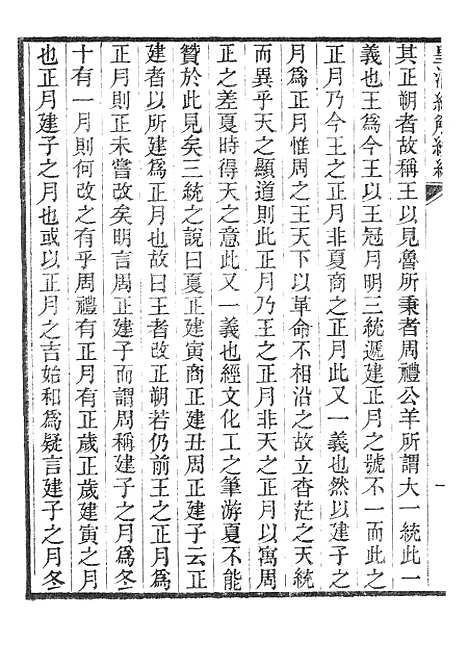 皇清經解續編
一
其正朔者故稱王以見魯所秉者周禮公羊所謂大一統此一
義也王為今王以王冠月明三統遞建正月之號不一而此之
正月乃今王之正月非夏商之正月此又一義也然以建子之
月為正月惟周之王天下以革命不相沿之故立杳茫之天統
而異乎天之顯道則此正月乃王之正月非天之正月以寓周
正之差夏時得天之意此又一義也經文化工之筆游夏不能
贊於此見矣三統之說曰夏正建寅商正建丑周正建子云正
建者以所建為正月也故曰王者改正朔若仍前王之正月為
正月則正未嘗改矣明言周正建子而謂周稱建子之月為冬
十有一月則何改之有乎周禮有正月有正歲正歲建寅之月
也正月建子之月也或以正月之吉始和為疑言建子之月冬